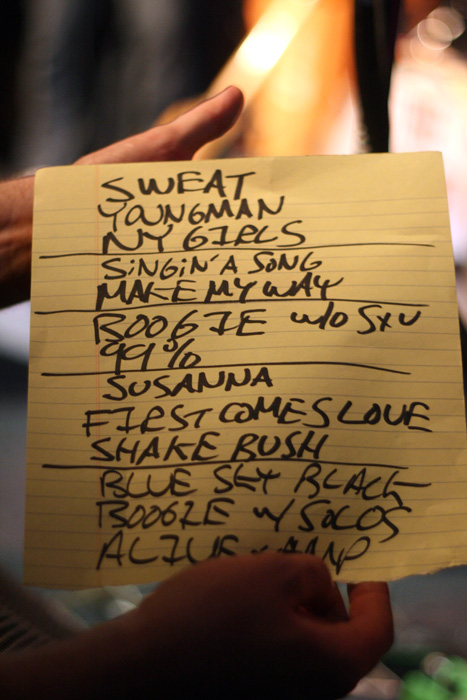 SWEAT
YOUNGMAN
NY GIRLS
SINGIN' A SONG
MAKE MY WAY
BOOGIE w/o SXU
99%
SUSANNA
FIRST COMES LOVE
SHAKE BUSH
BLUE SKY BLACK
BOOGIE w/ SOLOS
ALIVE